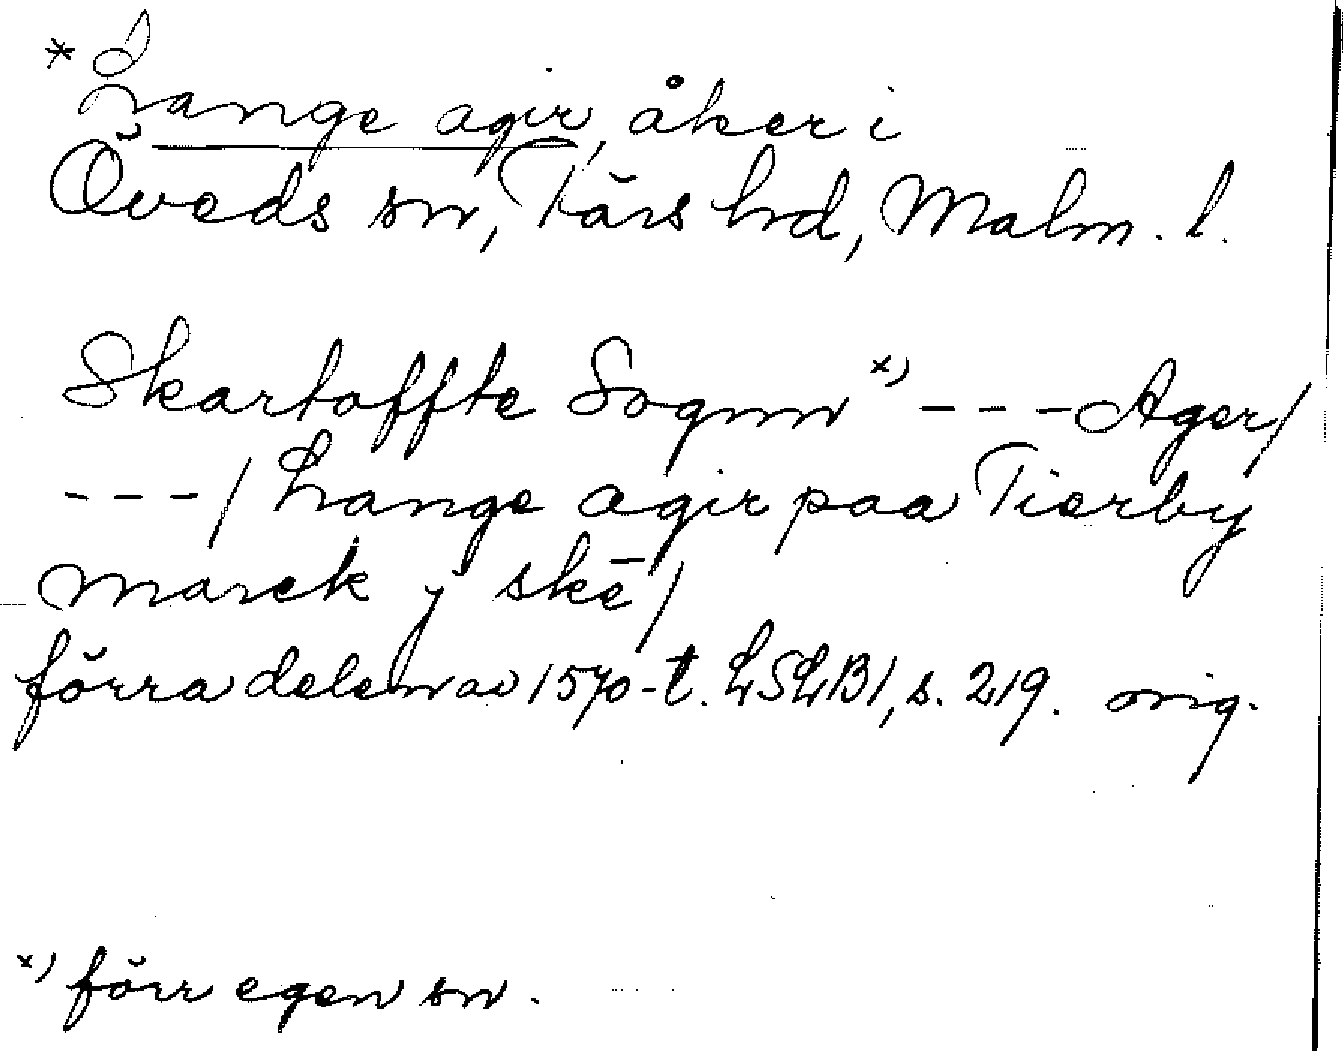 * Lange agir, åker i
Öveds sn, Färs hd, Malm. l.
Skartoffte Sognn x) - - - Ager/
- - - / Lange agir paa Tierby
marck j skē/
förra delen av 1570-t. LSLB1, s. 219. orig.
x) förr egen sn.